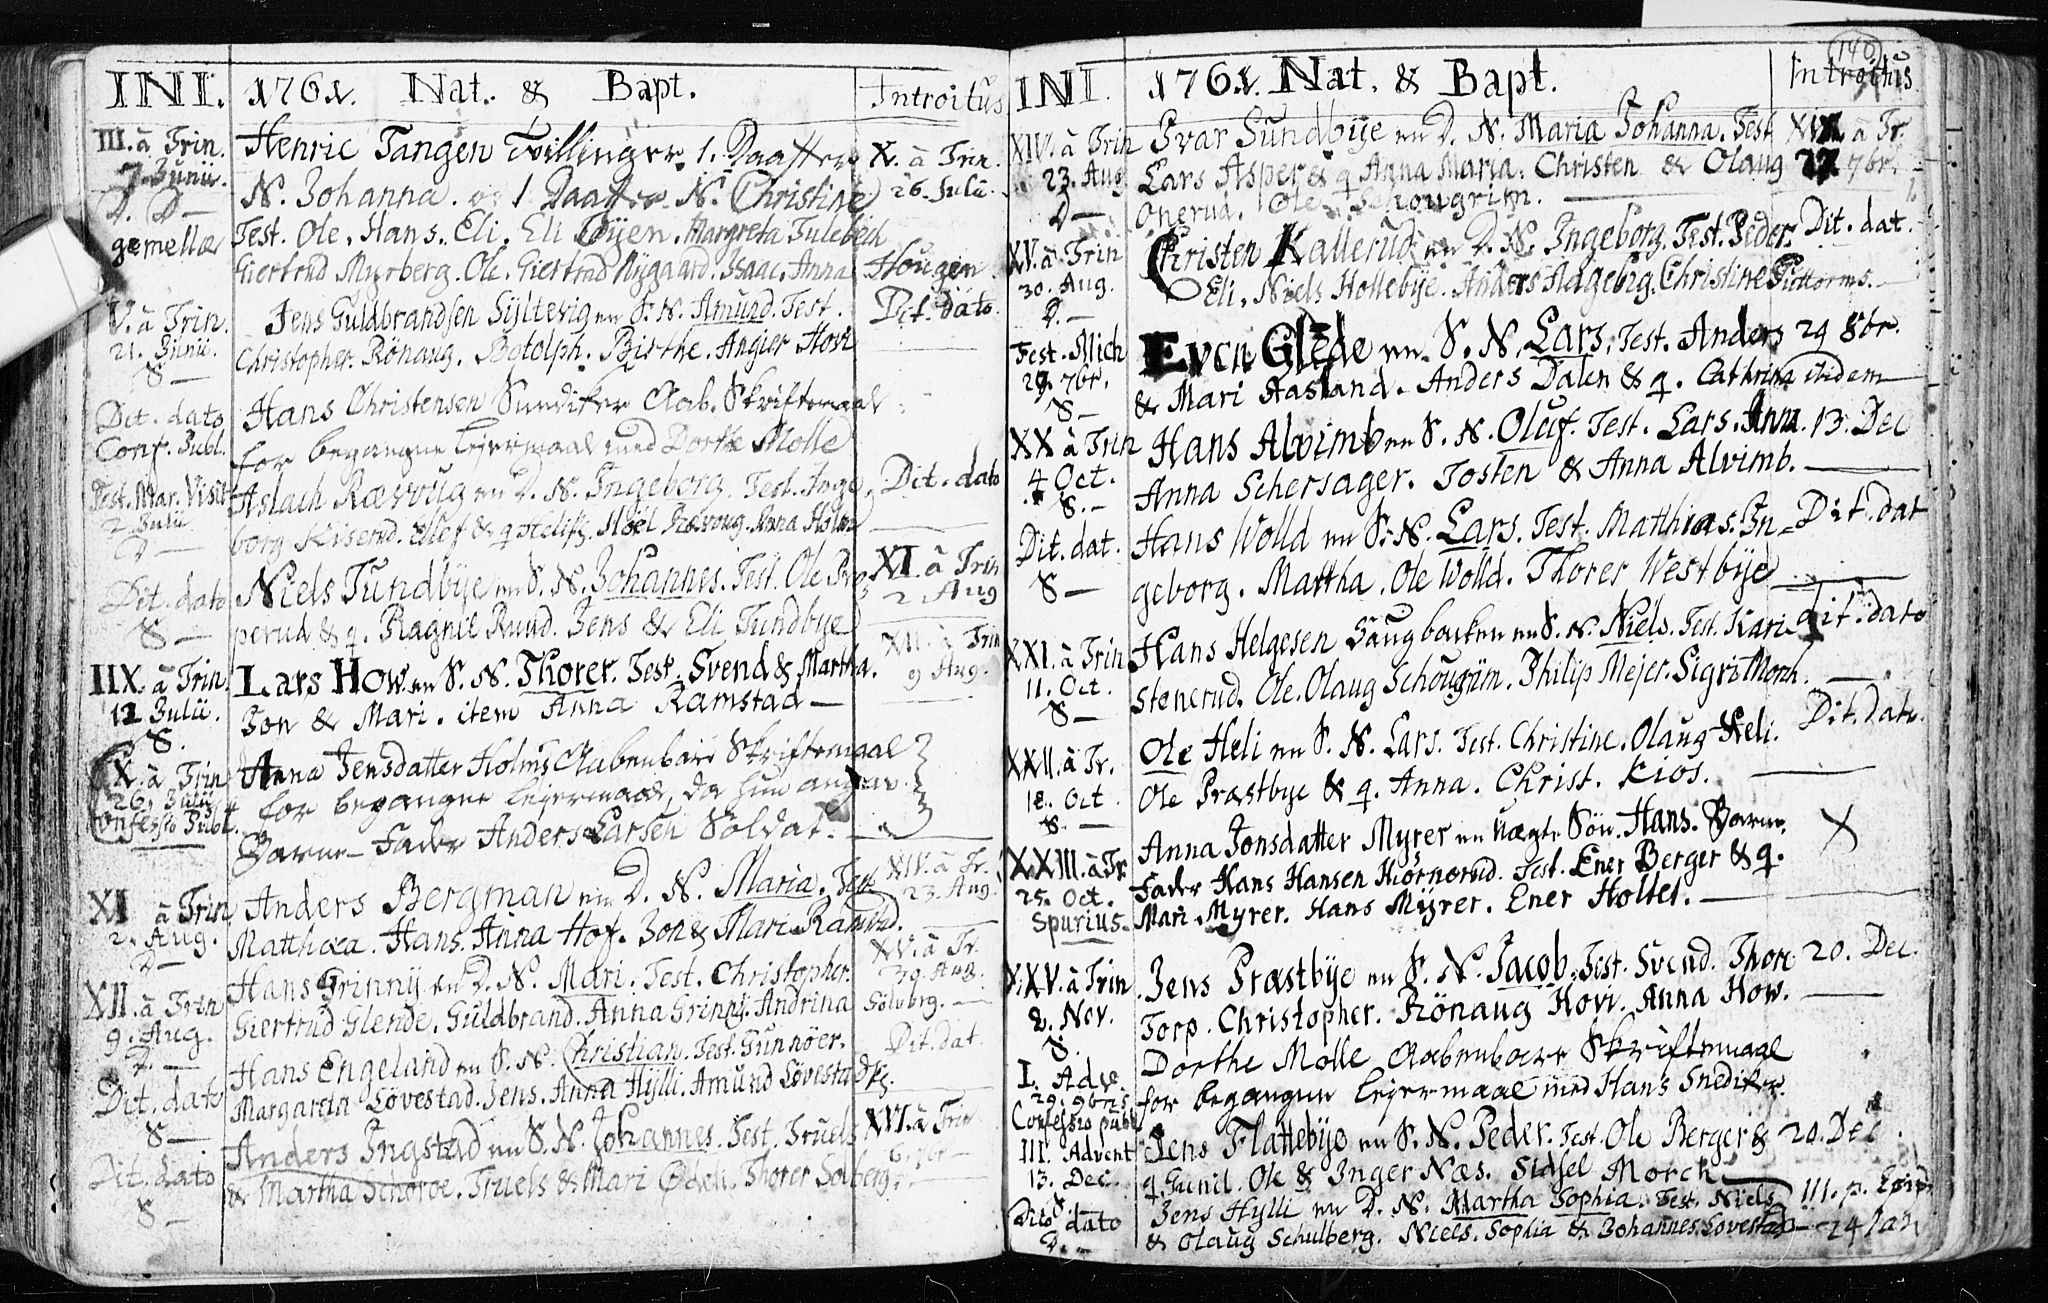 INI. 1761. Nat. & Bapt. Introitus
III. à Trin. Henric Tangen Tvillinger 1. Daatter X. à Trin.
7. Junii. N. Johanna. og 1 Daatter N. Christine 26. Julii.
D. D—
gemellæ Test. Ole. Hans. Eli. Eli Øyen. Margreta Tulebech
Giertrud Myrberg. Ole. Giertrud Nygaard. Isaac. Anna Hougen
V. à Trin. Jens Guldbrandsen Syltevig en S. N. Amund. Test. Dit. dato
21. Junii. Christopher. Rönaug. Botolph. Birthe. Angier Hovi
S—
Dit. dato Hans Christensen Snediker Aab. Skriftemaal
Conf. Publ. for begangne lejermaal med Dorthe Molle
Fest. Mar. Visit Aslach Rævoug en D. N. Ingeborg. Test. Inge Dit. dato
2 Julii borg Kiserud. & q Anna Holm
D—
Dit. dato Niels Tundbye en S. N. Johannes. Test. Ole Pro XI. à Trin
S— perud & q. Ragnil Ruud. Jens & Eli Tundbye 2 Aug
IIX. à Trin. Lars How en S. N. Thorer. Test. Svend & Martha. XII. à Trin
12 Julii. Jon & Mari. item Anna Ramstad— 9 Aug.
S.
X. à Trin Anna Jensdatter Holms Aabenbare Skriftemaal
26. Julii for begangne lejermaal, da hun angav
Confessio Publ. Barne-Fader Anders Larsen Soldat.—
XI à Trin Anders Bergman en D. N. Maria. Test XIV. à Tr.
2. Aug. Matthæa. Hans. Anna Hof. Jon & Mari Ramstad. 23. Aug.
D—
XII. à Trin Hans Grinny en D. N. Mari. Test. Christopher. XV. à Tr.
9. Aug. Giertrud Glende. Guldbrand. Anna Grinny. Andrina Sölvberg.— 30. Aug.
D.—
Dit. dato Hans Engeland en S. N. Christian. Test. Gunnöer. Dit. dat.
S— Margareta Lövestad. Jens. Anna Hylli. Amund Lövestad
Dit. dato Anders Ingstad en S. N. Johannes. Test. Truels XVI. à Trin
S— & Martha Schoroe. Truels & Mari Ødeli. Thorer Solberg.
140
INI. 1761. Nat. & Bapt. Introitus
XIV. à Trin Ivar Sundbye en D. N. Maria Johanna. Test à Tr.
23. Aug Lars Asper & q Anna Maria. Christen & Olaug 27. 7br.
D— Onerud. Ole Schougrim.
XV. à Trin Christen Kallerud en D. N. Ingeborg. Test. Peder. Dit. dat.
30. Aug. Eli. Niels Hollebye. Anders Christine
D.—
Fest. Mich Even Glede en S. N. Lars. Test. Anders 29 8br.
29. 7br. & Mari Aasland. Anders Dalen & q. Cathrina ibidem
S—
XX à Trin Hans Alvimb en S. N. Oluf. Test. Lars. Anna. 13. Dec
4 Oct. Anna Schersager. Tosten & Anna Alvimb.
S.—
Dit. dat. Hans Wolld en S. N. Lars. Test. Matthias. In- Dit. dat
S— geborg. Martha. Ole Wolld. Thorer Westbye
XXI. à Trin Hans Helgesen Saugbonken en S. N. Niels. Test. Kari dit. dato
11. Oct. Stenerud. Ole. Olaug Schougrim. Philip Mejer. Sigri Morch.
S—
XXII. à Tr. Ole Heli en S. N. Lars. Test. Christine. Olaug Heli. Dit. dato
18. Oct Ole Præstbye & q. Anna. Christ. Kios.
S.—
XXIII. à Tr. Anna Jonsdatter Myrer en Uægte Sön. Hans. Barne, X
25. Oct. Fader Hans Hansen Hiörnerud. Test. Ener Berger & q.
Spurius. Mari Myrer. Hans Myrer. Ener Holtet.
XXV. à Trin Jens Præstbye en S. N. Jacob. Test. Svend. Thore 20. Dec.
8. Nov. Torp. Christopher. Rönaug Hovi. Anna How.
S.
I. Adv. Dorthe Molle Aabenbare Skriftemaal
29. 9bris for begangne lejermaal med Hans Snediker.
Confessio publ.
III. Advent Jens Flattebye en S. N. Peder. Test. Ole Berger & 20. Dec
13. Dec. q. Gunil. Ole & Inger Næs. Sidsel Morch
S.
Dito dato Jens Hylli en D. N. Martha Sophia. Test. Niels III. p. Epip
D.— & Olaug Schulberg. Niels. Sophia & Johannes Lovestad— 24 Jan